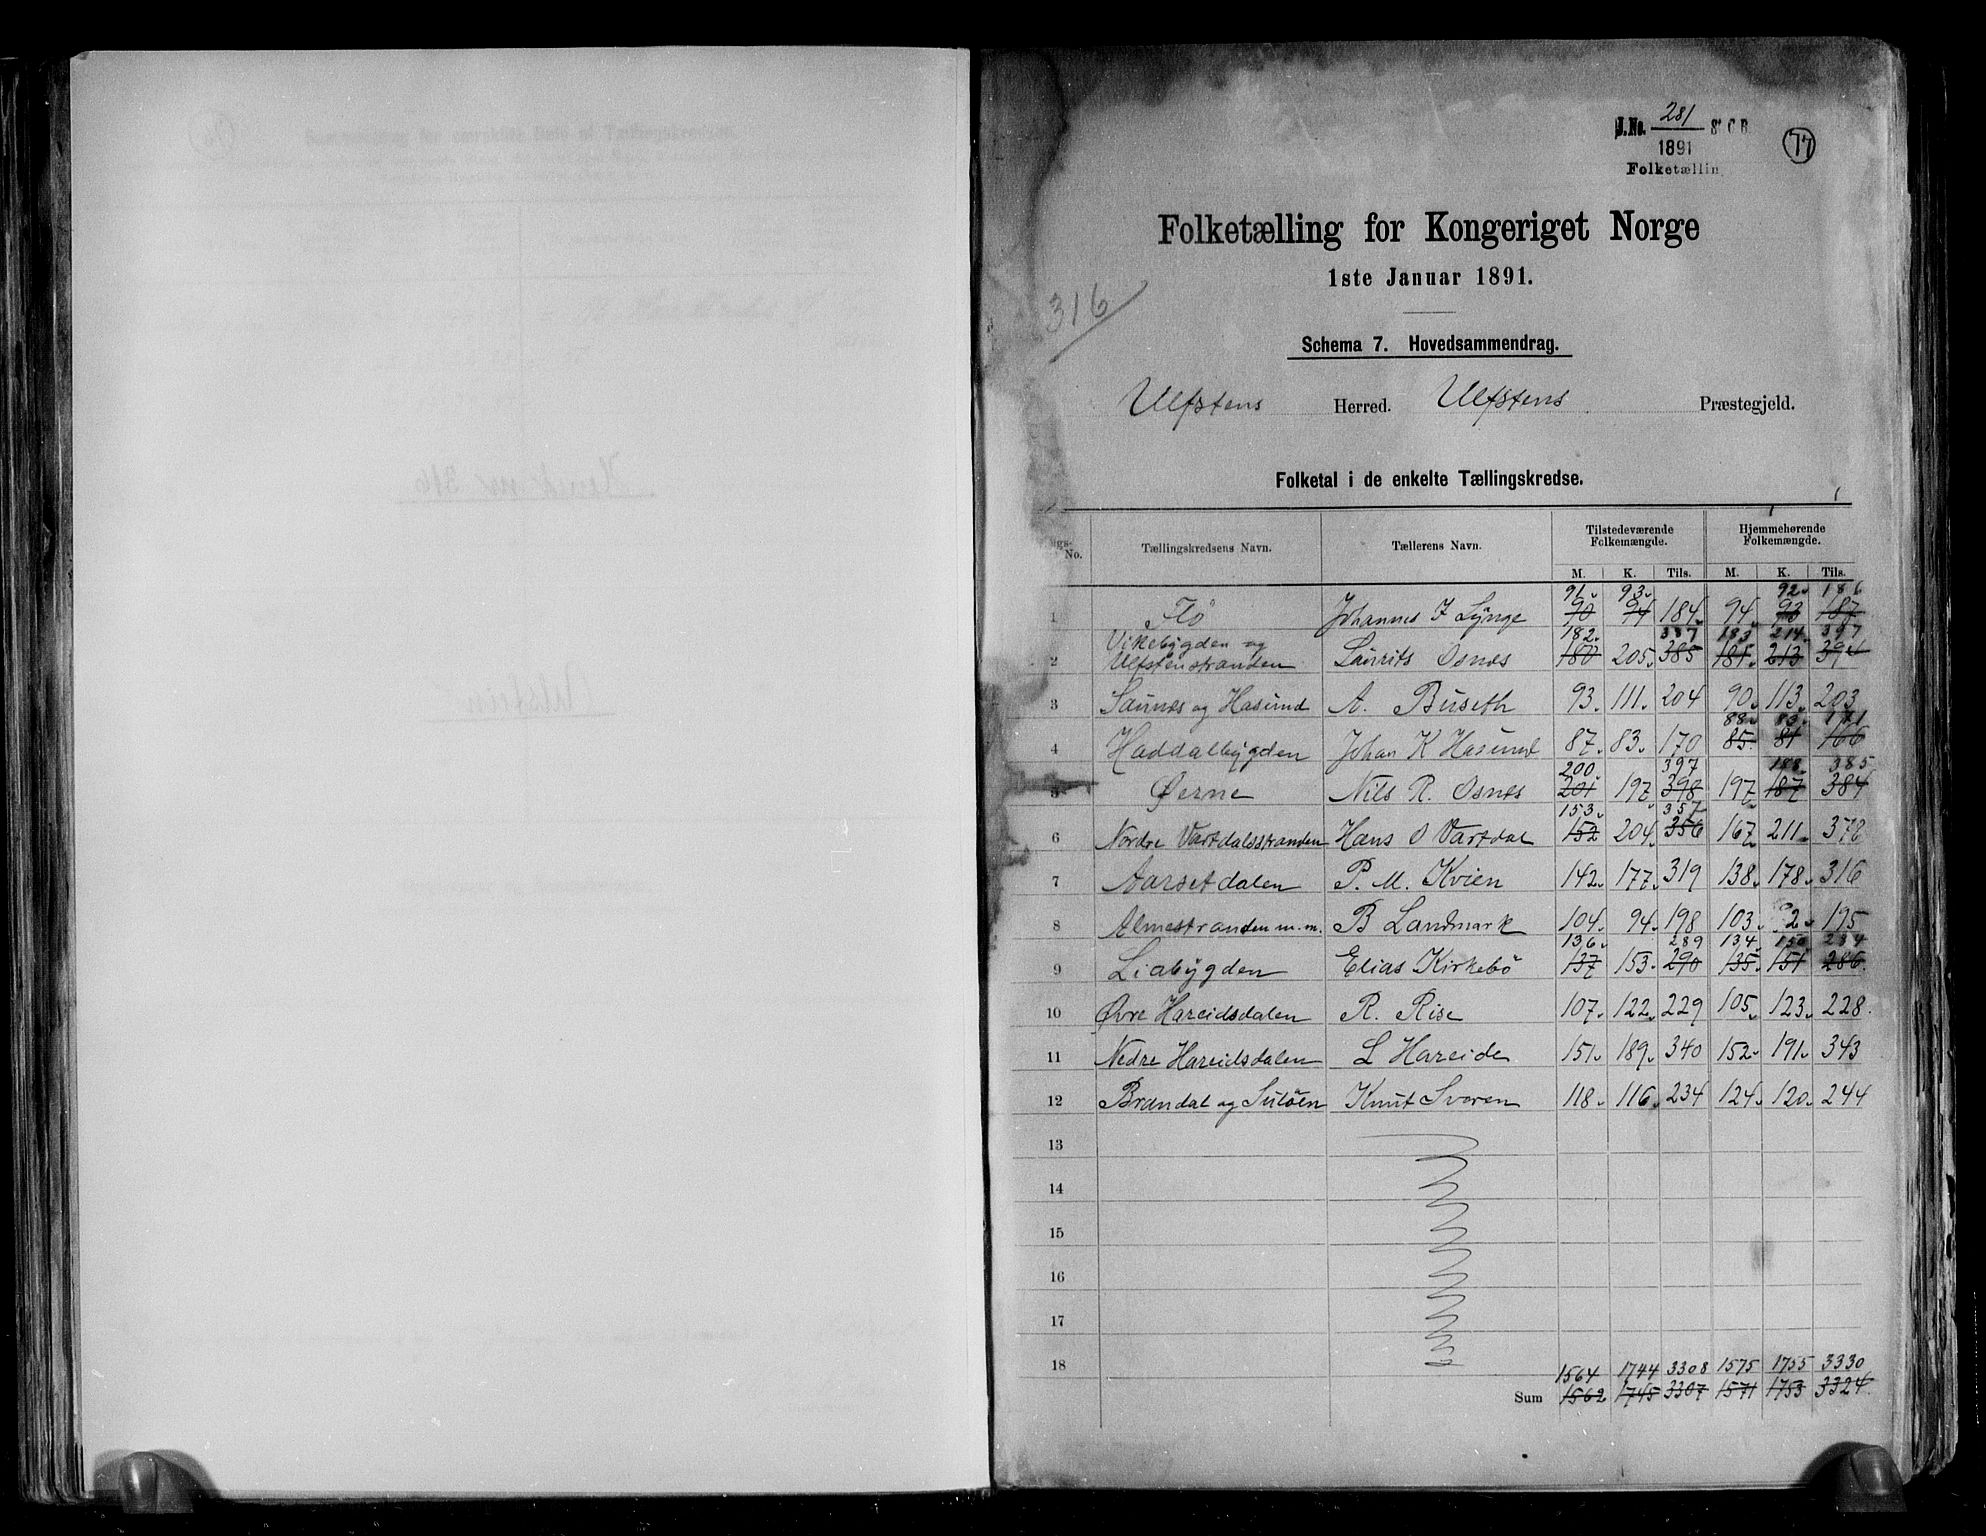 J.No. 281 S. C. B.
1891
Folketællin
77
Folketælling for Kongeriget Norge
1ste Januar 1891.
316
Schema 7. Hovedsammendrag.
Ulfstens Herred. Ulfstens Præstegjeld.
Folketal i de enkelte Tællingskredse.
No. Tællingskredsens Navn. Tællerens Navn. Tilstedeværende Folkemængde. Hjemmehørende Folkemængde.
M. K. Tils. M. K. Tils.
91 93 92 186
1 Flö Johannes J Lynge 90 94 184 94 93 187
182 387 183 214 397
2 Vikebygden og Ulfstenstranden Laurits Osnes 180 205 385 181 213 394
3 Saunes og Hasund A. Buseth 93 111 204 90 113 203
88 83 171
4 Haddalbygden Johan K Hasund 87 83 170 85 81 166
200 397 188 385
5 Øerne Nils R. Osnes 201 197 398 197 187 384
153 357
6 Nordre Vartdalsstranden Hans O Vartdal 152 204 356 167 211 378
7 Aarsetdalen P. M. Kvien 142 177 319 138 178 316
8 Almestranden m.m. B Landmark 104 94 198 103 2 195
136 289 134 150 284
9 Liabygden Elias Kirkebö 137 153 290 135 151 286
10 Øvre Hareidsdalen R. Rise 107 122 229 105 123 228
11 Nedre Hareidsdalen L Hareide 151 189 340 152 191 343
12 Brandal og Sulöen Knut Svoren 118 116 234 124 120 244
13
14
15
16
17
18
1564 1744 3308 1575 1755 3330
Sum 1562 1745 3307 1571 1753 3324